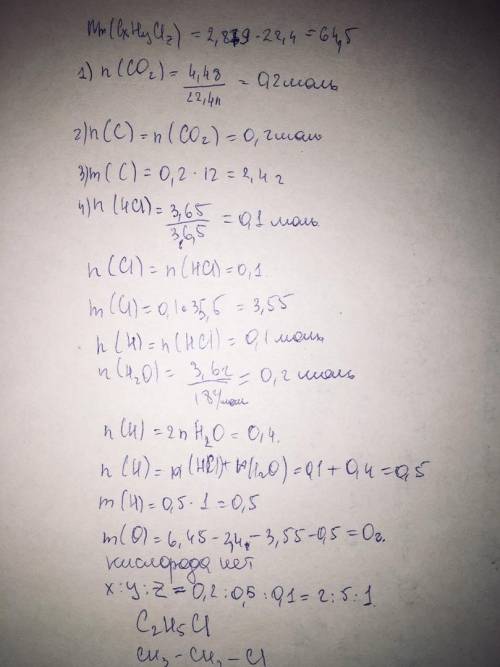 Mm(CxHyClz) = 2,879·22,4 = 64,5
1) n(CO₂) = 4,48/22,4л = 0,2 моль
2) n(C) = n(CO₂) = 0,2 моль
3) m(C) = 0,2·12 = 2,4 г
4) n(HCl) = 3,65/36,5 = 0,1 моль
n(Cl) = n(HCl) = 0,1
m(Cl) = 0,1·35,5 = 3,55
n(H) = n(HCl) = 0,1 моль
n(H₂O) = 3,6г/18г/моль = 0,2 моль
n(H) = 2nH₂O = 0,4.
n(H) = n(HCl) + n(H₂O) = 0,1 + 0,4 = 0,5
m(H) = 0,5·1 = 0,5
m(O) = 6,45 - 2,4 - 3,55 - 0,5 = 0г.
кислорода нет
x:y:z = 0,2:0,5:0,1 = 2:5:1
C₂H₅Cl
CH₃-CH₂-Cl